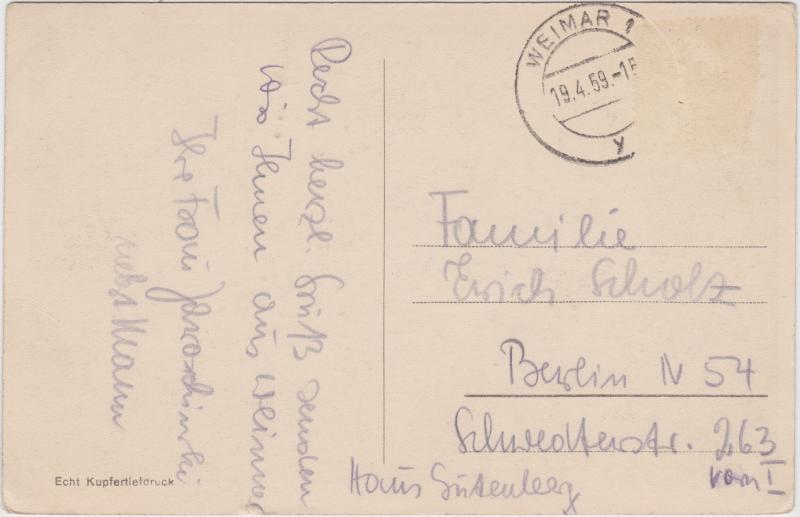 Recht herzl. Gruß senden
wir Ihnen aus Weimar
Ihre Frau Jaroschinski
nebst Mann
Echt Kupfertiefdruck
WEIMAR 1
19.4.59.-15
y
Familie
Erich Scholz
Berlin N 54
Schwedterstr. 263
vorn I
Haus Gutenberg